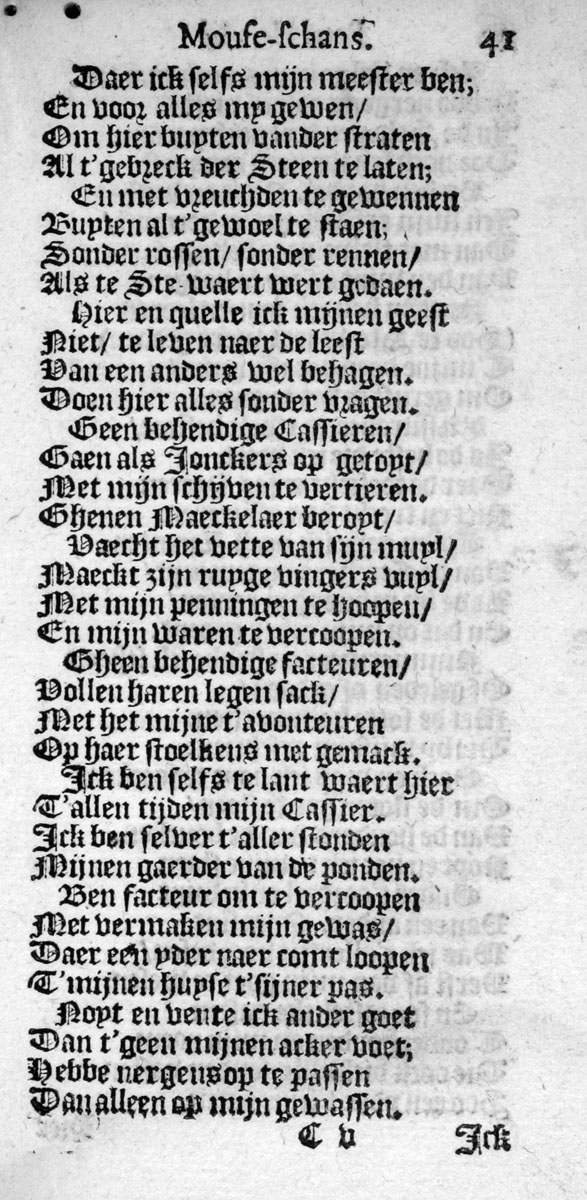 Moufe-schans. 41
Daer ick selfs mijn meester ben;
En voor alles my gewen/
Om hier buyten vander straten
Al t'gebreck der Steen te laten;
En met vreuchden te gewennen
Buyten al t'gewoel te staen;
Sonder rossen/ sonder rennen/
Als te Ste-waert wert gedaen.
Hier en quelle ick mijnen geest
Niet/ te leven naer de leest
Van een anders wel behagen.
Doen hier alles sonder vragen.
Geen behendige Cassieren/
Gaen als Jonckers op getoyt/
Met mijn schijven te vertieren.
Ghenen Maeckelaer beroyt/
Vaecht het vette van sijn muyl/
Maeckt zijn ruyge vingers vuyl/
Met mijn penningen te hoopen/
En mijn waren te vercoopen.
Gheen behendige facteuren/
Vollen haren legen sack/
Met het mijne t'avonteuren
Op haer stoelkens met gemack.
Ick ben selfs te lant waert hier
T'allen tijden mijn Cassier.
Ick ben selver t'aller stonden
Mijnen gaerder van de ponden.
Ben facteur om te vercoopen
Met vermaken mijn gewas/
Daer een yder naer comt loopen
T'mijnen huyse t'sijner pas.
Noyt en vente ick ander goet
Dan t'geen mijnen acker voet;
Hebbe nergens op te passen
Dan alleen op mijn gewassen.
C v Ick